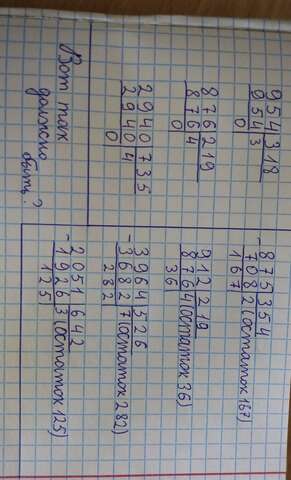 954|318
954|3
0
876|219
876|4
0
2940|735
2940|4
0
Вот так
должно
быть?
- 875|354
708|2(остаток 167)
167
912|219
876|4(остаток 36)
36
- 3964|526
3682|7(остаток 282)
282
- 2051|642
1926|3(остаток 125)
125